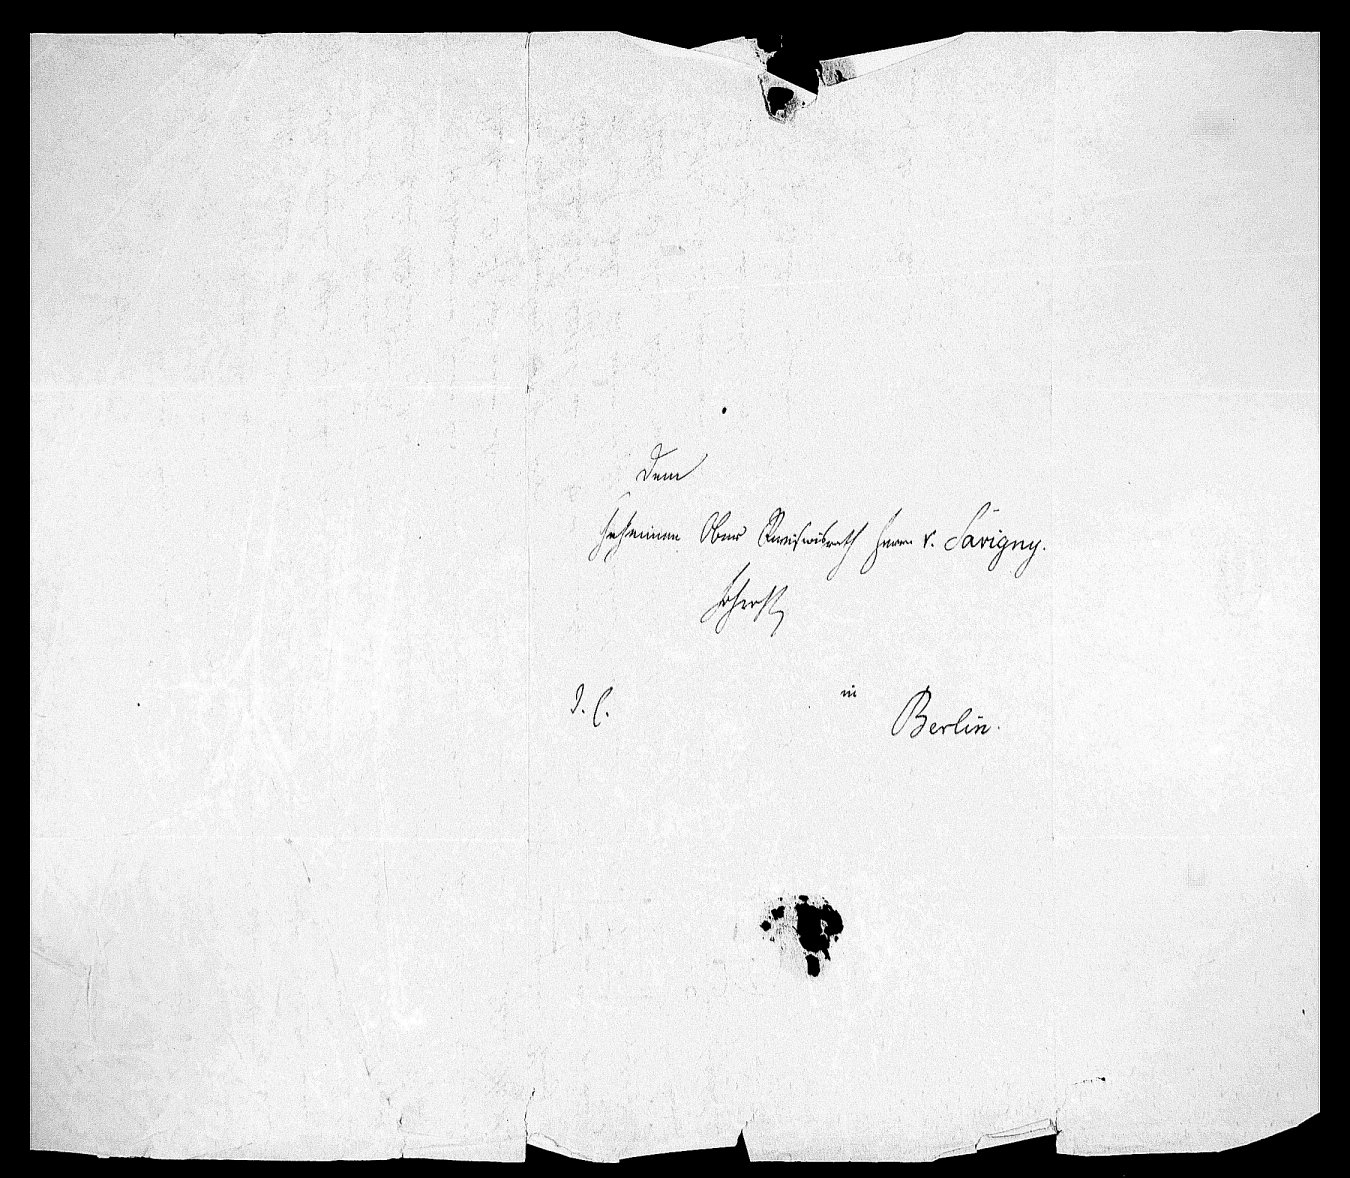 Dem
Geheimen Ober Revisionsrath Herrn v. Savigny.
in
Berlin.